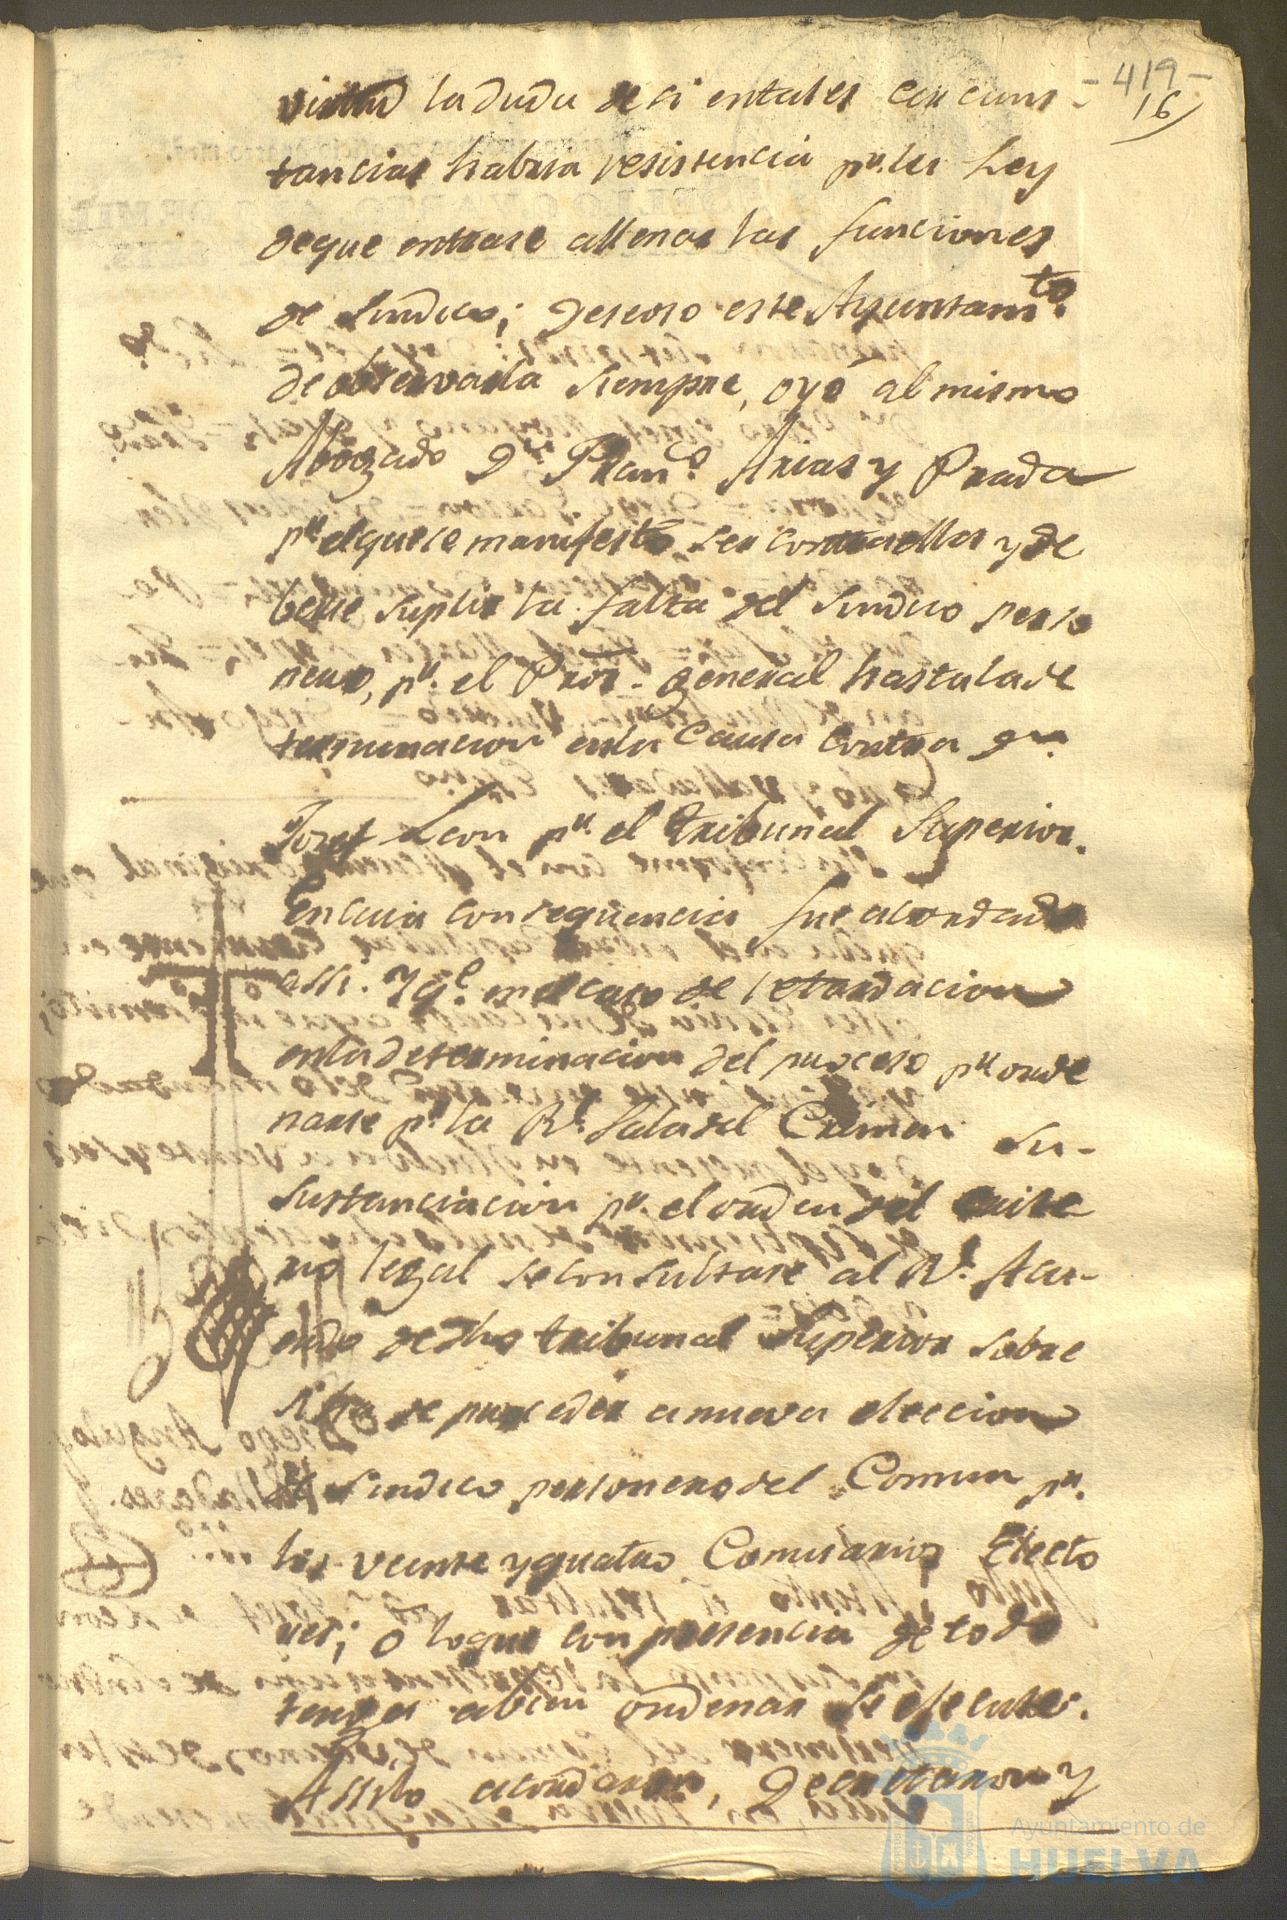 -419-
16
virtud la duda de si en tales circuns-
tancias habrá resistencia pr. la Ley
de que entrase a llenar las funciones
de Sindico; Deseoso este Ayuntamto.
de observarla siempre, oyó al mismo
Abogado Dn. Franco. Arias y Prada
pr. el que se manifestó, ser contra ellas y de
berse suplir la falta del Sindico perso
nero, pr. el Pror. general hasta la de
terminacion en la Causa contra Dn.
Josef Leon pr. el tribunal Superior.
En cuia consequencia fue acordado
assi. Y qe. en el caso de retardacion
en la determinacion del proceso pr. orde
narse pr. la Rl. Sala del Crimen su-
sustanciacion pr. el orden del
no legal se consultase al Rl. Acu-
erdo de dho tribunal Superior sobre
si ha de proceder a nueva eleccion
de Sindico personero del Comun pr.
los veinte y quatro Comisarios Electo
res; o lo que con presencia de todo
tenga abien ordenar se execute.
Assi lo acordaron, Decretaron y
Ayuntamiento de
HUELVA